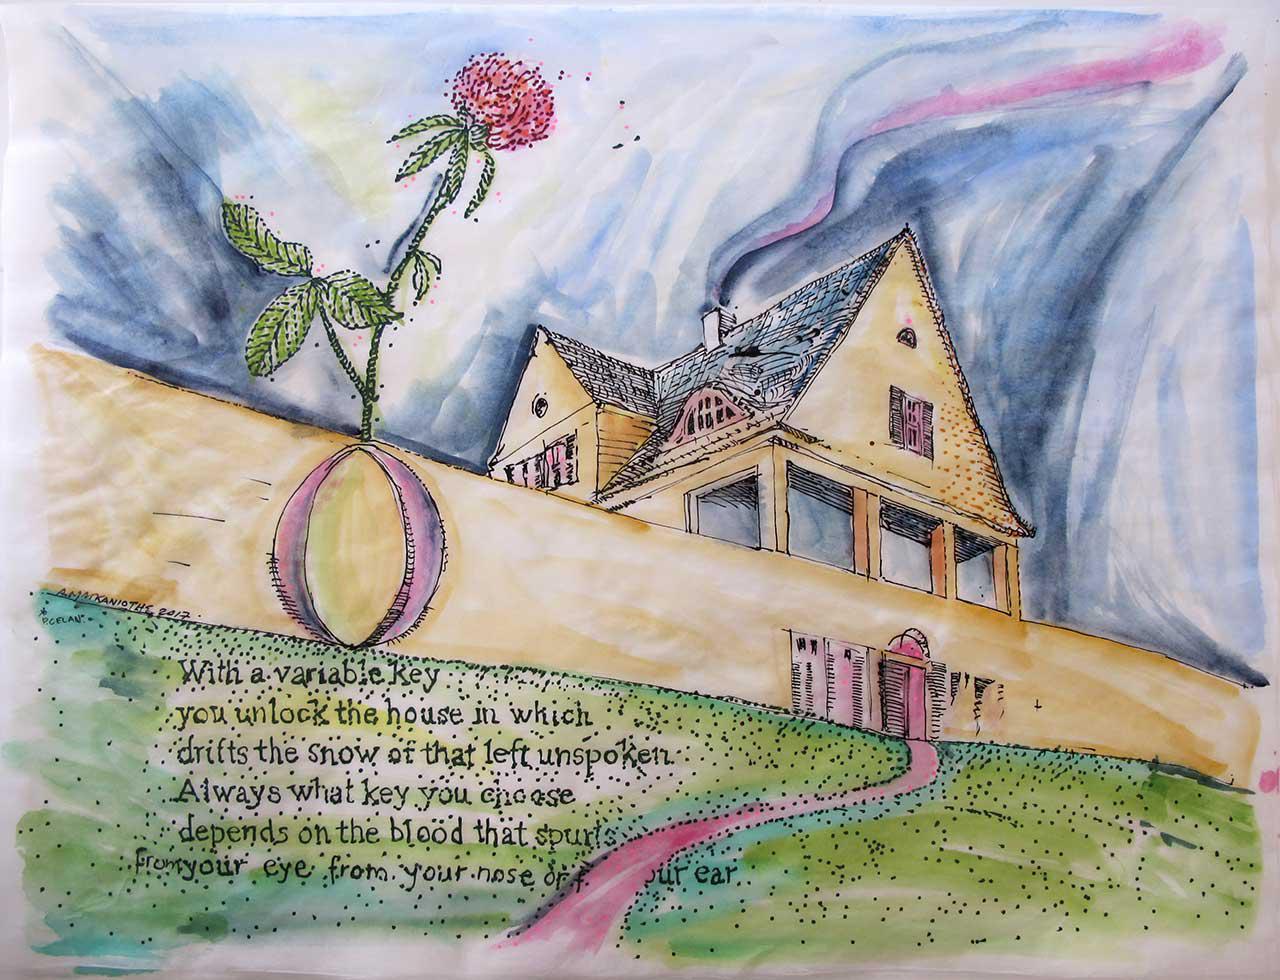 2017
"P.CELAN"
With a variable key
you unlock the house in which
drifts the snow of that left unspoken.
Always what key you choose
depends on the blood that spurts
from your eye from your nose or
ear